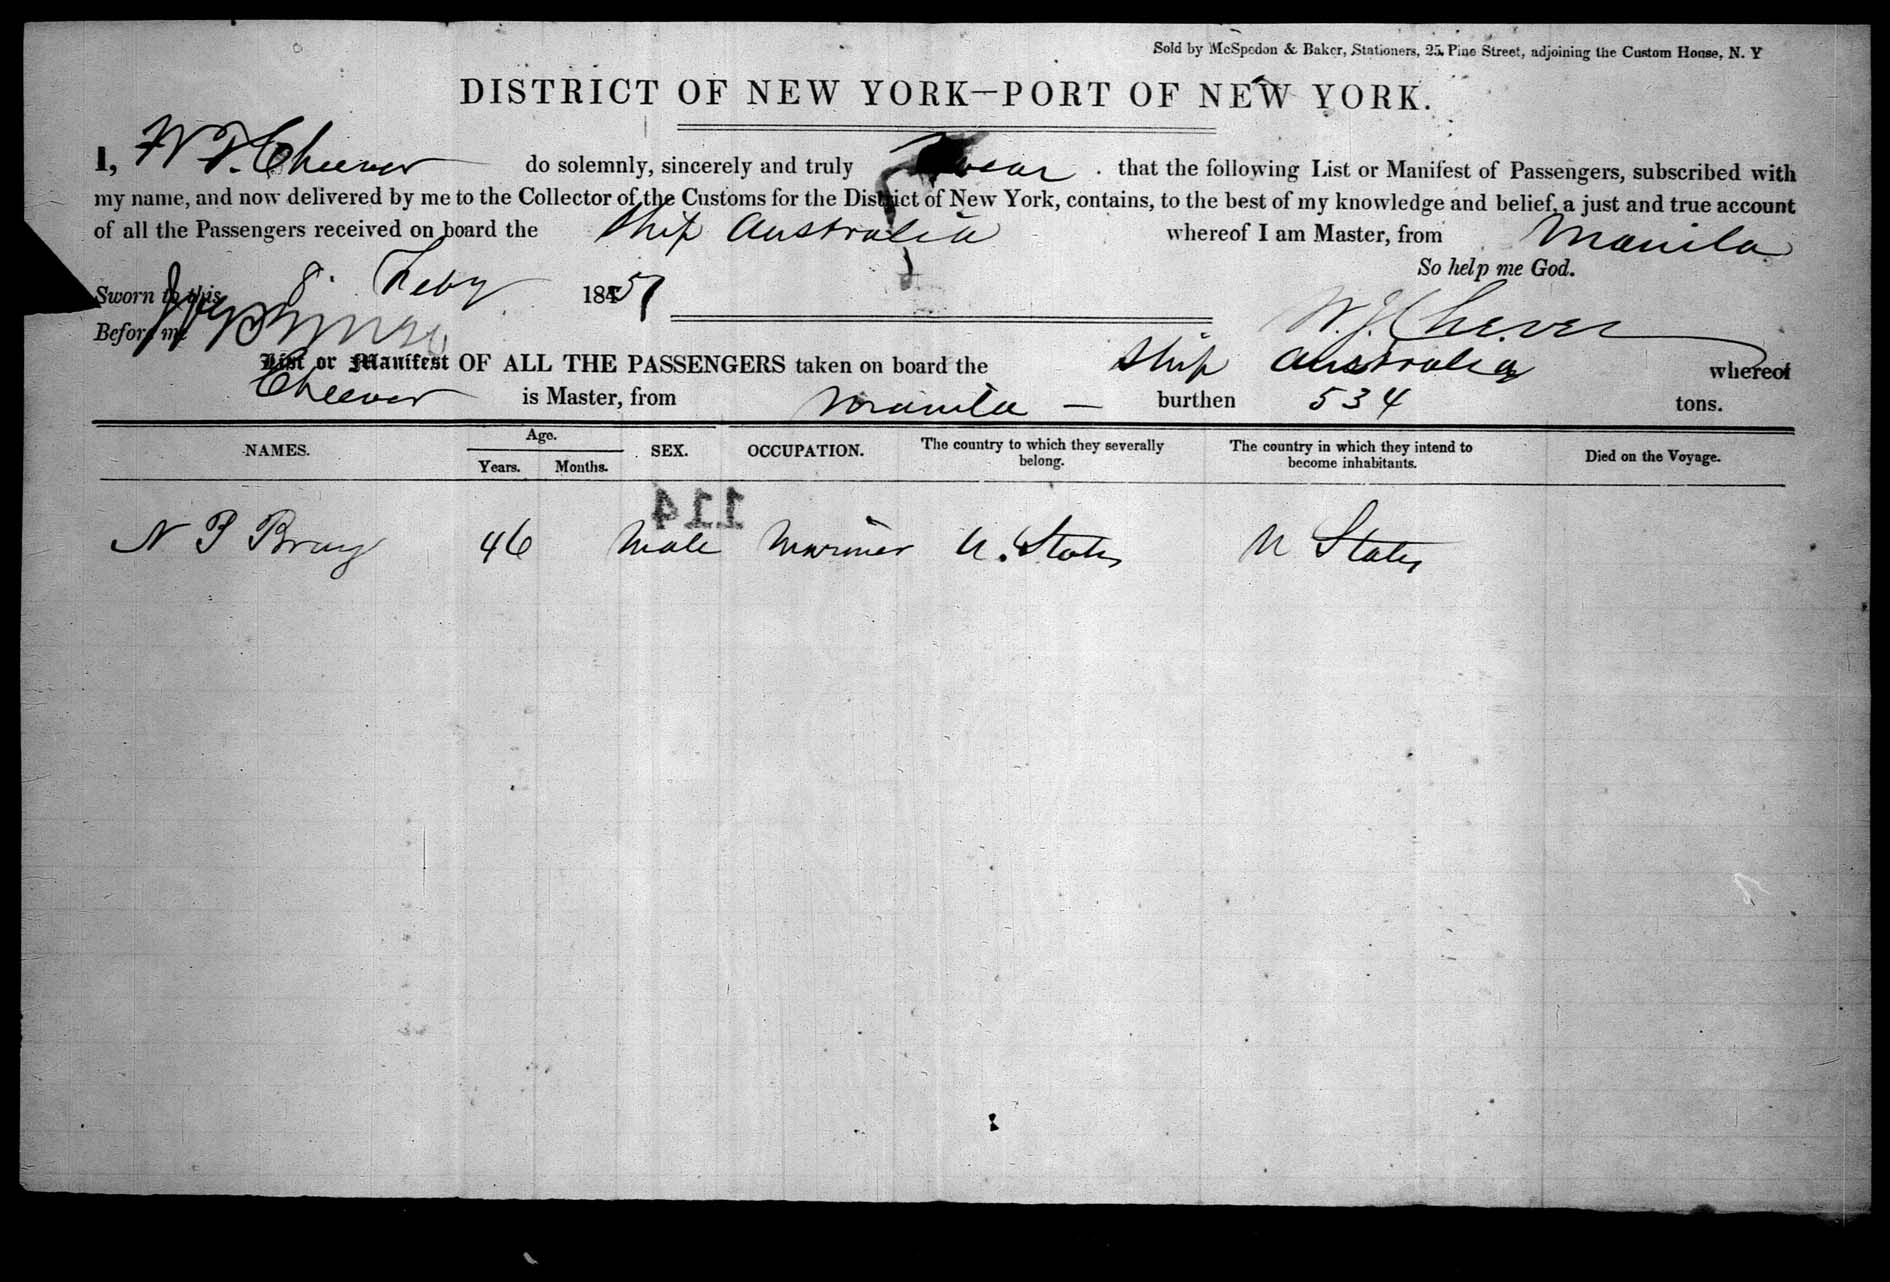 Sold by McSpedon & Baker, Stationers, 25 Pine Street, adjoining the Custom House, N. Y
DISTRICT OF NEW YORK—PORT OF NEW YORK.
I, W. J. Cheever do solemnly, sincerely and truly swear that the following List or Manifest of Passengers, subscribed with
my name, and now delivered by me to the Collector of the Customs for the District of New York, contains, to the best of my knowledge and belief, a just and true account
of all the Passengers received on board the Ship Australia whereof I am Master, from Manila
So help me God.
Sworn to this 8. Feby 1851
Before me
W. J. Cheever
List or Manifest OF ALL THE PASSENGERS taken on board the Ship Australia whereof
Cheever is Master, from Manila — burthen 534 tons.
NAMES. Age. Years. Months. SEX. OCCUPATION. The country to which they severally belong. The country in which they intend to become inhabitants. Died on the Voyage.
114
N P Bray 46 Male Mariner U. States U States